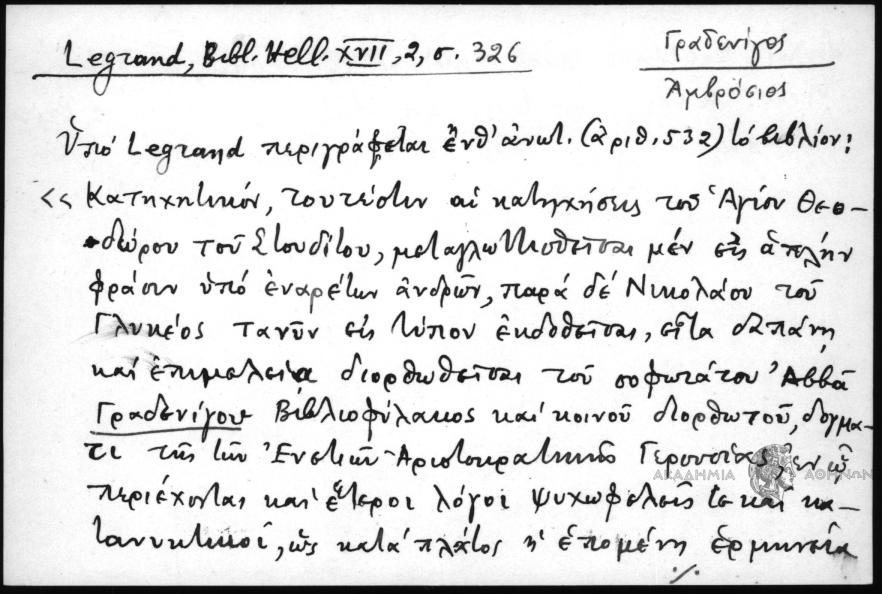 Legrand, Bibl. Hell. XVII, 2, σ. 326
Γραδενίγος
Ἀμβρόσιος
Ὑπό Legrand περιγράφεται ἐνθ' ἀνωτ. (ἀριθ. 532) τό βιβλίον:
<< Κατηχητικόν, τουτέστιν αἱ κατηχήσεις τοῦ Ἁγίου Θεο-
δώρου τοῦ Στουδίτου, μεταγλωττισθεῖσαι μέν εἰς ἁπλῆν
φράσιν ὑπό ἐναρέτων ἀνδρῶν, παρά δέ Νικολάου τοῦ
Γλυκέος τανῦν εἰς τύπον ἐκδοθεῖσαι, εἶτα δαπάνῃ
καί ἐπιμελείᾳ διορθωθεῖσαι τοῦ σοφωτάτου Ἀββᾶ
Γραδενίγου Βιβλιοφύλακος καί κοινοῦ διορθωτοῦ, δόγμα-
τι τῆς τῶν Ἐνετῶν Ἀριστοκρατικῆς Γερουσίας, ἐν ᾧ
περιέχονται καί ἕτεροι λόγοι ψυχωφελεῖς τε καί κα-
τανυκτικοί, ὡς κατά πλάτος ἡ ἑπομένη ἑρμηνεία
./.
ΑΚΑΔΗΜΙΑ ΑΘΗΝΩΝ